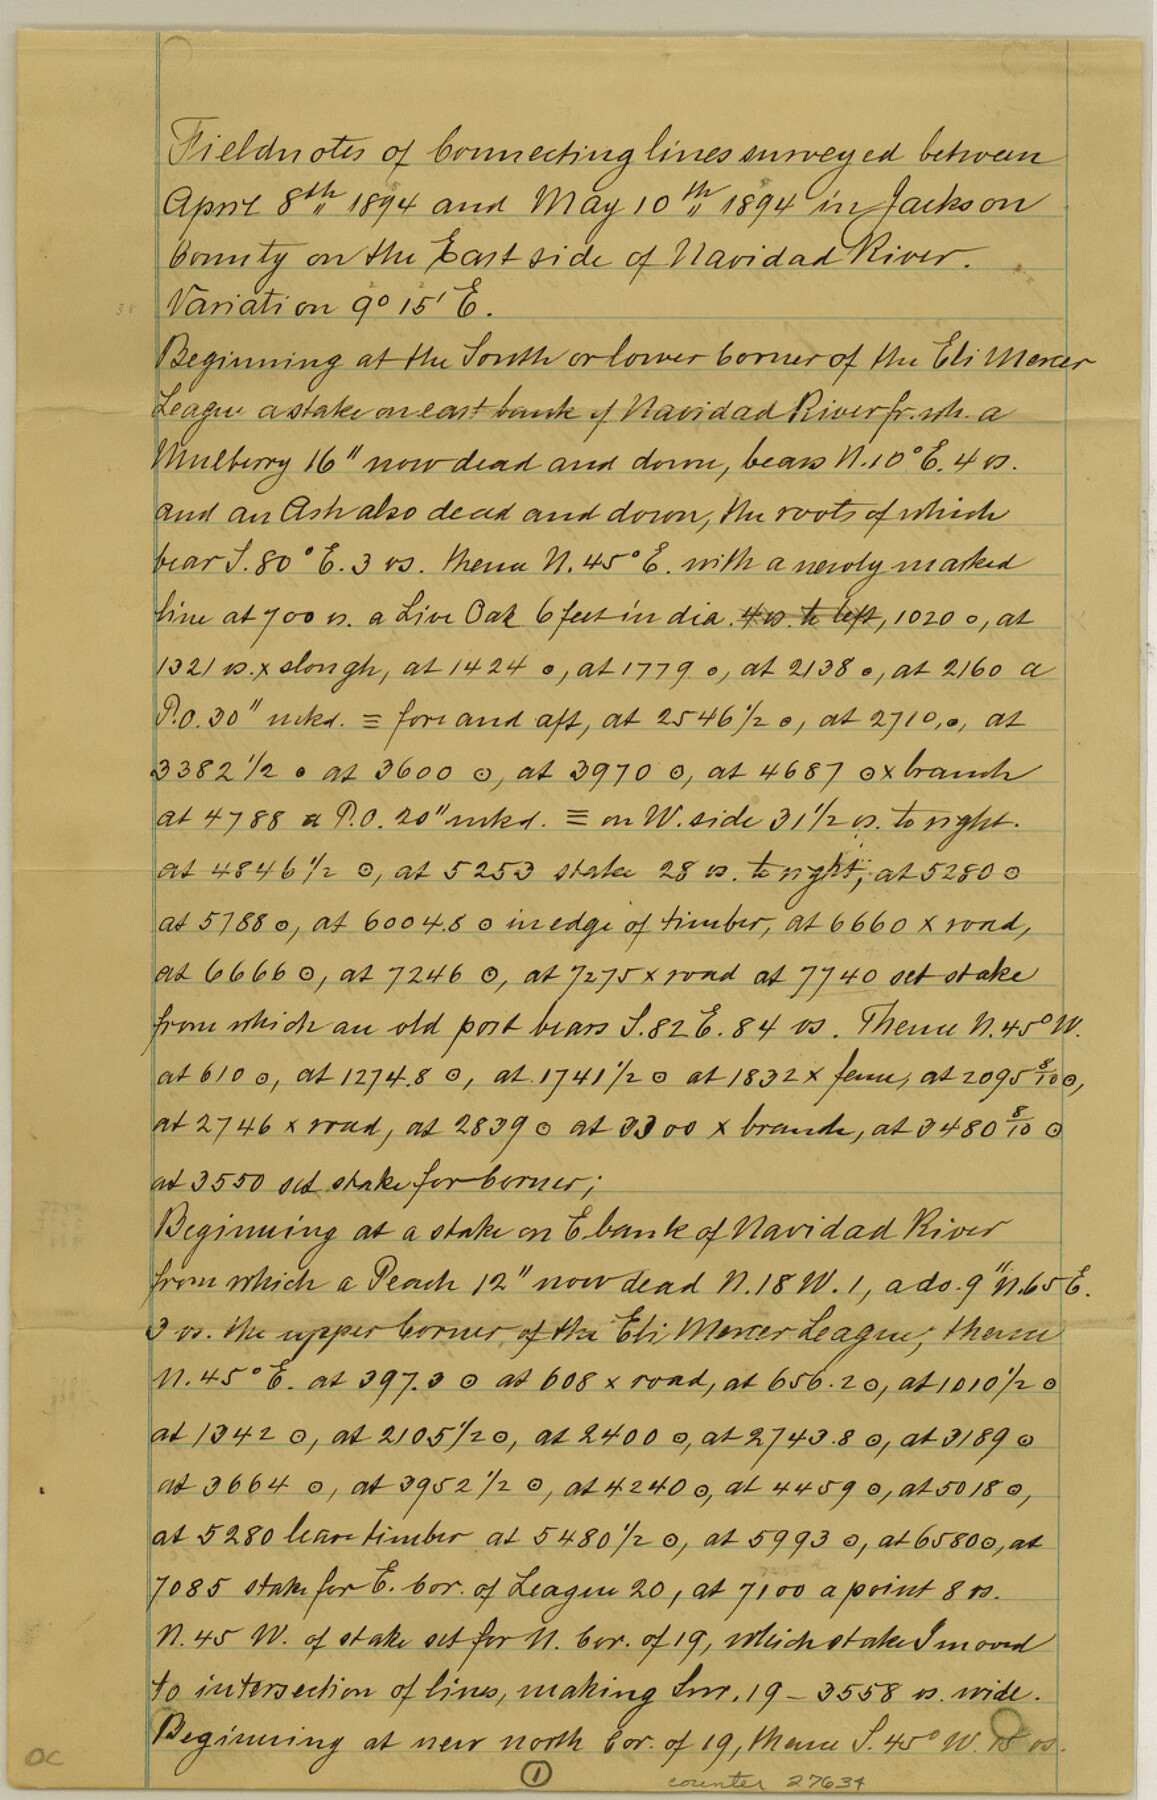 Fieldnotes of Connecting lines surveyed between
April 8th 1894 and May 10th 1894 in Jackson
County on the East side of Navidad River.
Variation 9° 15' E.
Beginning at the South or lower Corner of the Eli Mercer
League a stake on east bank of Navidad River fr. wh. a
Mulberry 16" now dead and down, bears N. 10° E. 4 vs.
and an Ash also dead and down, the roots of which
bear S. 80° E. 3 vs. thence N. 45° E. with a newly marked
line at 700 vs. a Live Oak 6 feet in dia. 4 vs. to left, 1020 ⊙, at
1321 vs. x slough, at 1424 ⊙, at 1779 ⊙, at 2138 ⊙, at 2160 a
P.O. 30" mkd. ≡ fore and aft, at 2546 1/2 ⊙, at 2710, ⊙, at
3382 1/2 ⊙ at 3600 ⊙, at 3970 ⊙, at 4687 ⊙ x branch
at 4788 a P.O. 20" mkd. ≡ on W. side 31 1/2 vs. to right.
at 4846 1/2 ⊙, at 5253 stake 28 vs. to right, at 5280 ⊙
at 5788 ⊙, at 6004.8 ⊙ in edge of timber, at 6660 x road,
at 6666 ⊙, at 7246 ⊙, at 7275 x road at 7740 set stake
from which an old post bears S. 82 E. 84 vs. Thence N. 45° W.
at 610 ⊙, at 1274.8 ⊙, at 1741 1/2 ⊙ at 1832 x fence, at 2095 8/10 ⊙,
at 2746 x road, at 2839 ⊙ at 3300 x branch, at 3480 8/10 ⊙
at 3550 set stake for Corner;
Beginning at a stake on E bank of Navidad River
from which a Peach 12" now dead N. 18 W. 1, a do. 9" N. 65 E.
3 vs. the upper Corner of the Eli Mercer League, thence
N. 45° E. at 397.3 ⊙ at 608 x road, at 656.2 ⊙, at 1010 1/2 ⊙
at 1342 ⊙, at 2105 1/2 ⊙, at 2400 ⊙, at 2743.8 ⊙, at 3189 ⊙
at 3664 ⊙, at 3952 1/2 ⊙, at 4240 ⊙, at 4459 ⊙, at 5018 ⊙,
at 5280 leave timber at 5480 1/2 ⊙, at 5993 ⊙, at 6580 ⊙, at
7085 stake for E. Cor. of League 20, at 7100 a point 8 vs.
N. 45 W. of stake set for N. Cor. of 19, which stake I moved
to intersection of lines, making Sur. 19 - 3558 vs. wide.
Beginning at new north Cor. of 19, thence S. 45° W. 15 vs.
OC
1
counter 27634